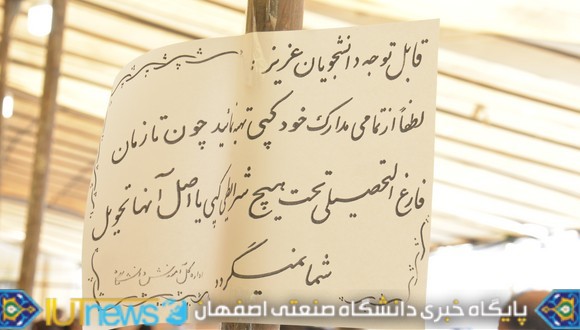 قابل توجه دانشجویان عزیز:
لطفاً از تمامی مدارک خود کپی تهیه نمائید چون تا زمان
فارغ التحصیلی تحت هیچ شرایطی کپی یا اصل آنها تحویل
شما نمیگردد
اداره کل آموزش دانشگاه
IUTnews
پایگاه خبری دانشگاه صنعتی اصفهان